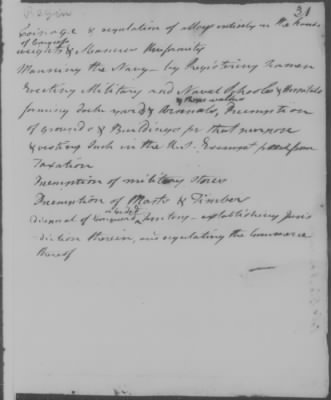 31
Coinage & regulation of alloy entirely in the hands
of Congress
weights & Measures Uniformity
Manning the Navy — by Registering Seamen
Erecting Military and Naval Schools & Hospitals
forming Dock yards & Arsenals, Preemption
of Grounds & Buildings for that purpose
& vesting such in the U.S. Exempt from
Taxation
Preemption of military stores
Preemption of Masts & Timber
disposal of Conquered territory — establishing Juris
diction therein, in regulating the Commerce
thereof